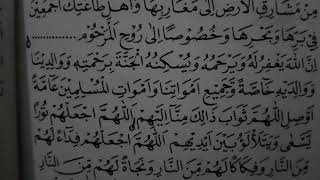 مِنْ مَشَارِقِ الْأَرْضِ إِلَى مَغَارِبِهَا وَأَهْلِ طَاعَتِكَ أَجْمَعِيْنَ
فِيْ بَرِّهَا وَبَحْرِهَا وَخُصُوْصًا إِلَى رُوْحِ الْمَرْحُوْمِ
إِنَّ اللهَ يَغْفِرُلَهُ وَيَرْحَمُهُ وَيُسْكِنُهُ الْجَنَّةَ بِرَحْمَتِهِ وَوَالِدِيْنَا
وَوَالِدِيْهِ خَاصَّةً وَجَمِيْعِ أَمْوَاتِنَا وَأَمْوَاتِ الْمُسْلِمِيْنَ عَامَّةً
أَوْصِلِ اللّٰهُمَّ ثَوَابَ ذٰلِكَ مِنَّا إِلَيْهِمْ اَللّٰهُمَّ اجْعَلْهُمْ نُوْرًا
يَسْعَى وَيَتَلَأْلَؤُ بَيْنَ أَيْدِيْهِمْ اَللّٰهُمَّ اجْعَلْهُمْ فِدَاءً لَهُمْ
مِنَ النَّارِ وَفِكَاكًا لَهُمْ مِنَ النَّارِ وَنَجَاةً لَهُمْ مِنَ النَّارِ